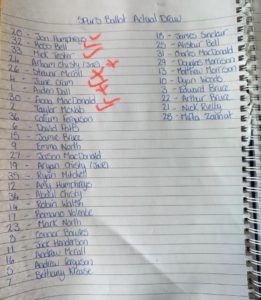 Spurs Ballot Actual Draw
20 - Jon Humphreys
32 - Ross Bell
33 - Mick
24 - Arham Christy (Sue)
26 - Stewar McGill
1 - June Oram
1 - Aiden Dall
30 - Fiona MacDonald
Taylor McNab
36 - Callum Ferguson
6 - David Potts
15 - Jamie Bruce
9 - Emma North
27 - Jason MacDonald
19 - Aryan Christy (Sue)
35 - Ryan Mitchell
12 - Amy Humphreys
34 - Abdul Christy
16 - Robin Walsh
17 - Romano Valente
23 - Mark North
3 - Connor Bowles
11 - Jack Henderson
4 - Andrew McGill
16 - Andrew Ferguson
5 - Bethany Krause
7
18 - James Sinclair
25 - Alistair Bell
31 - Charles MacDonald
29 - Douglas Morrison
13 - Matthew Morrison
10 - Dylan Woods
2 - Edward Bruce
22 - Arthur Bruce
21 - Nick Reilly
28 -